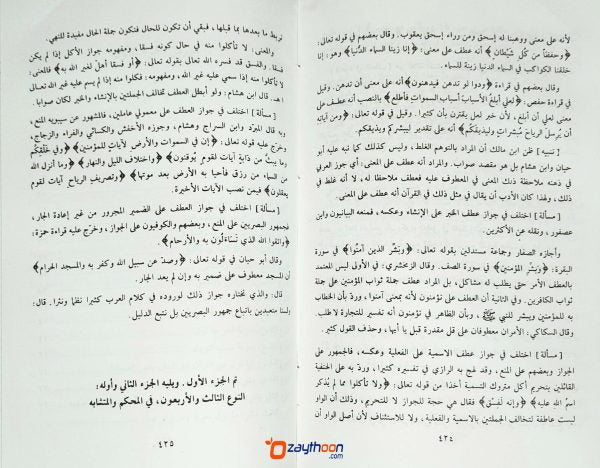 لأنه على معنى ووهبنا له إسحق ومن وراء إسحق يعقوب. وقال بعضهم في قوله تعالى:
﴿وحفظاً من كُلِّ شَيْطَانٍ﴾ أنه عطف على معنى ﴿إنا زينا السماء الدُّنيا﴾ وهو: إنا
خلقنا الكواكب في السماء الدنيا زينة للسماء.
وقال بعضهم في قراءة ﴿ودوا لو تدهن فيدهنون﴾ أنه على معنى أن تدهن. وقيل
في قراءة حفص: ﴿لعلي أبلغُ الأسبابَ أسبابَ السموات فأطلع﴾ بالنصب أنه عطف على
معنى لعلي أن أبلغ، لأن خبر لعل يقترن بأن كثيرا. وقيل في قوله تعالى: ﴿ومن آياته
أن يُرسِلَ الرياحَ مُبشراتٍ وليُذيقَكُم﴾ أنه على تقدير ليبشركم ويذيقكم.
[ تنبيه ] ظن ابن مالك أن المراد بالتوهم الغلط، وليس كذلك كما نبه عليه أبو
حيان وابن هشام بل هو مقصد صواب. والمراد أنه عطف على المعنى: أي جوز العربي
في ذهنه ملاحظة ذلك المعنى في المعطوف عليه فعطف ملاحظا له، لا أنه غلط في
ذلك، ولهذا كان الأدب أن يقال في مثل ذلك في القرآن أنه عطف على المعنى.
[ مسألة ] اختلف في جواز عطف الخبر على الإنشاء وعكسه، فمنعه البيانيون وابن
عصفور، ونقله عن الأكثرين.
وأجازه الصفار وجماعة مستدلين بقوله تعالى: ﴿وَبَشِّرِ الذين آمنوا﴾ في سورة
البقرة: ﴿وبَشِّرِ المؤمنين﴾ في سورة الصف. وقال الزمخشري: في الأولى ليس المعتمد
بالعطف الأمر حتى يطلب له مشاكل، بل المراد عطف جملة ثواب المؤمنين على جملة
ثواب الكافرين. وفي الثانية أن العطف على تؤمنون لأنه بمعنى آمنوا، وردّ بأن الخطاب
به للمؤمنين ويبشر للنبي ﷺ، وبأن الظاهر في تؤمنون أنه تفسير للتجارة لا طلب.
وقال السكاكي: الأمران معطوفان على قل مقدرة قبل يا أيها، وحذف القول كثير.
[ مسألة ] اختلف في جواز عطف الاسمية على الفعلية وعكسه، فالجمهور على
الجواز وبعضهم على المنع، وقد لهج به الرازي في تفسيره كثيرا، وردّ به على الحنفية
القائلين بتحريم أكل متروك التسمية أخذا من قوله تعالى: ﴿ولا تأكلوا مما لم يُذكر
اسم الله عليه﴾ ﴿وإنه لَفِسْق﴾ فقال هي حجة للجواز لا للتحريم، وذلك أن الواو
ليست عاطفة لتخالف الجملتين بالاسمية والفعلية، ولا للاستئناف لأن أصل الواو أن
٤٣٤
تربط ما بعدها بما قبلها، فبقي أن تكون للحال فتكون جملة الحال مفيدة للنهي.
والمعنى: لا تأكلوا منه في حال كونه فسقا، ومفهومه جواز الأكل إذا لم يكن
فسقا. والفسق قد فسره الله تعالى بقوله تعالى: ﴿أو فسقا أهلّ لغير الله به﴾ فالمعنى:
لا تأكلوا منه إذا سمي عليه غير الله، ومفهومه: فكلوا منه إذا لم يسم عليه غير الله تعالى
اهـ. قال ابن هشام: ولو أبطل العطف لتخالف الجملتين بالإنشاء والخبر لكان صوابا.
[ مسألة ] اختلف في جواز العطف على معمولي عاملين، فالمشهور عن سيبويه المنع،
وبه قال المبرّد وابن السراج وهشام، وجوزه الأخفش والكسائي والفراء والزجاج،
وخرّج عليه قوله تعالى: ﴿إن في السموات والأرض لآيات للمؤمنين﴾ ﴿وفي خَلْقِكُم
وما يبثُّ من دابةٍ آيات لقوم يُوقنون﴾ ﴿واختلاف الليل والنهار﴾ ﴿وما أنزل الله
من السماء من رزق فأحيا به الأرض بعد موتها﴾ ﴿وتصريفِ الرياح آيات لقوم
يعقلون﴾ فيمن نصب الآيات الأخيرة.
[ مسألة ] اختلف في جواز العطف على الضمير المجرور من غير إعادة الجار،
فجمهور البصريين على المنع، وبعضهم والكوفيون على الجواز، وخرّج عليه قراءة حمزة:
﴿واتقوا الله الذي تَسَاءلُون به والأرحامِ﴾.
وقال أبو حيان في قوله تعالى: ﴿وصدّ عن سبيل الله وكفر به والمسجد الحرام﴾
أن المسجد معطوف على ضمير به وإن لم يعد الجار.
قال: والذي نختاره جواز ذلك لوروده في كلام العرب كثيرا نظما ونثرا. قال:
ولسنا متعبدين باتباع جمهور البصريين بل نتبع الدليل.
تم الجزء الأول. ويليه الجزء الثاني وأوله:
النوع الثالث والأربعون، في المحكم والمتشابه
٤٣٥
Ozaythoon
.com